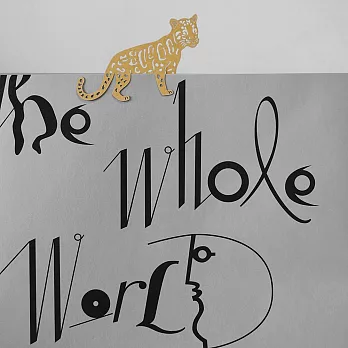 The
Whole
WorLD